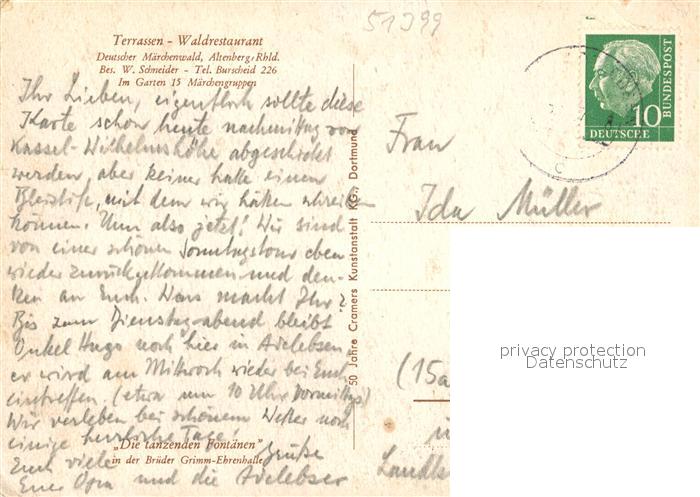 51399
Terrassen - Waldrestaurant
Deutscher Märchenwald, Altenberg/Rhld.
Bes. W. Schneider - Tel. Burscheid 226
Im Garten 15 Märchengruppen
Ihr Lieben, eigentlich sollte diese
Karte schon heute nachmittag von
Kassel-Wilhelmshöhe abgeschickt
werden, aber keiner hatte einen
Bleistift, mit dem wir hätten schreiben
können. Nun also jetzt! Wir sind
von einer schönen Sonntagstour eben
wieder zurückgekommen und den-
ken an Euch. Was macht Ihr?
Bis zum Dienstag-abend bleibt
Onkel Hugo noch hier in Adelebsen,
er wird am Mittwoch wieder bei Euch
eintreffen. (etwa um 10 Uhr vormittgs)
Wir verleben bei schönem Wetter noch
einige herrliche Tage!
"Die tanzenden Fontänen"
in der Brüder Grimm-Ehrenhalle
Euch viele Grüße
Euer Opa und die Adelebser
50 Jahre Cramers Kunstanstalt KG., Dortmund
DEUTSCHE
BUNDESPOST
10
c
Frau
Ida Müller
privacy protection
Datenschutz
(15a
in
Landk